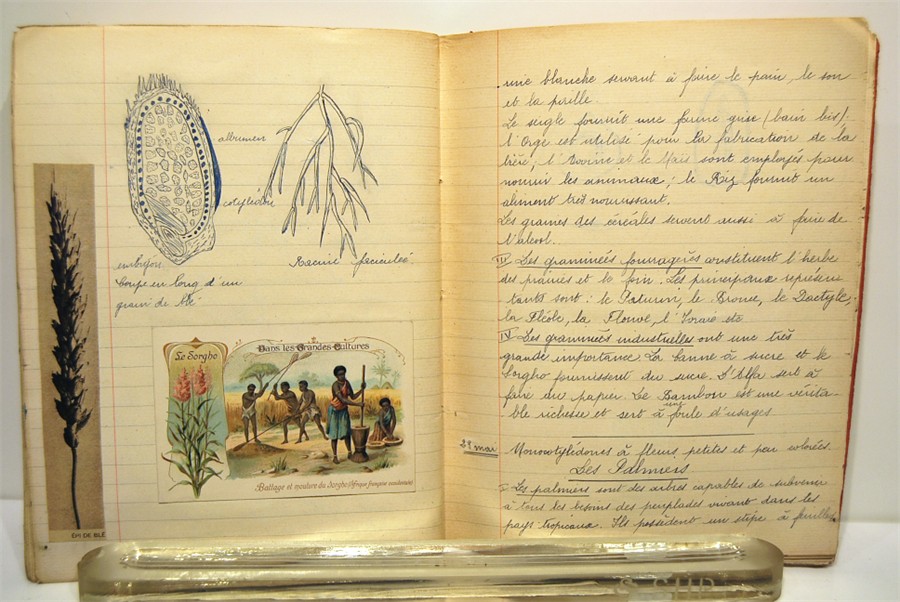 albumen
cotylédon
embryon
Coupe en long d'un
grain de blé
Racine fasciculée
EPI DE BLÉ
Le Sorgho
Dans les Grandes Cultures
Battage et mouture du Sorgho (Afrique française occidentale)
une blanche servant à faire le pain, le son
et la paille
Le seigle fournit une farine grise (pain bis);
l'Orge est utilisé pour la fabrication de la
bière; l'Avoine et le Maïs sont employés pour
nourrir les animaux; le Riz fournit un
aliment très nourrissant.
Les graines des céréales servent aussi à faire de
l'alcool.
III Les graminées fourragères constituent l'herbe
des prairies et le foin. Les principaux représen
tants sont: le Paturin, le Brome, le Dactyle,
la Fléole, la Flouve, l'Ivraie etc
IV Les graminées industrielles ont une très
grande importance. La canne à sucre et le
Sorgho fournissent du sucre. L'Alfa sert à
faire du papier. Le Bambou est une vérita-
ble richesse et sert à une foule d'usages
29 mai
Monocotylédones à fleurs petites et peu colorées.
Les Palmiers
I Les palmiers sont des arbres capables de subvenir
à tous les besoins des peuplades vivant dans les
pays tropicaux. Ils possèdent un stipe à feuilles